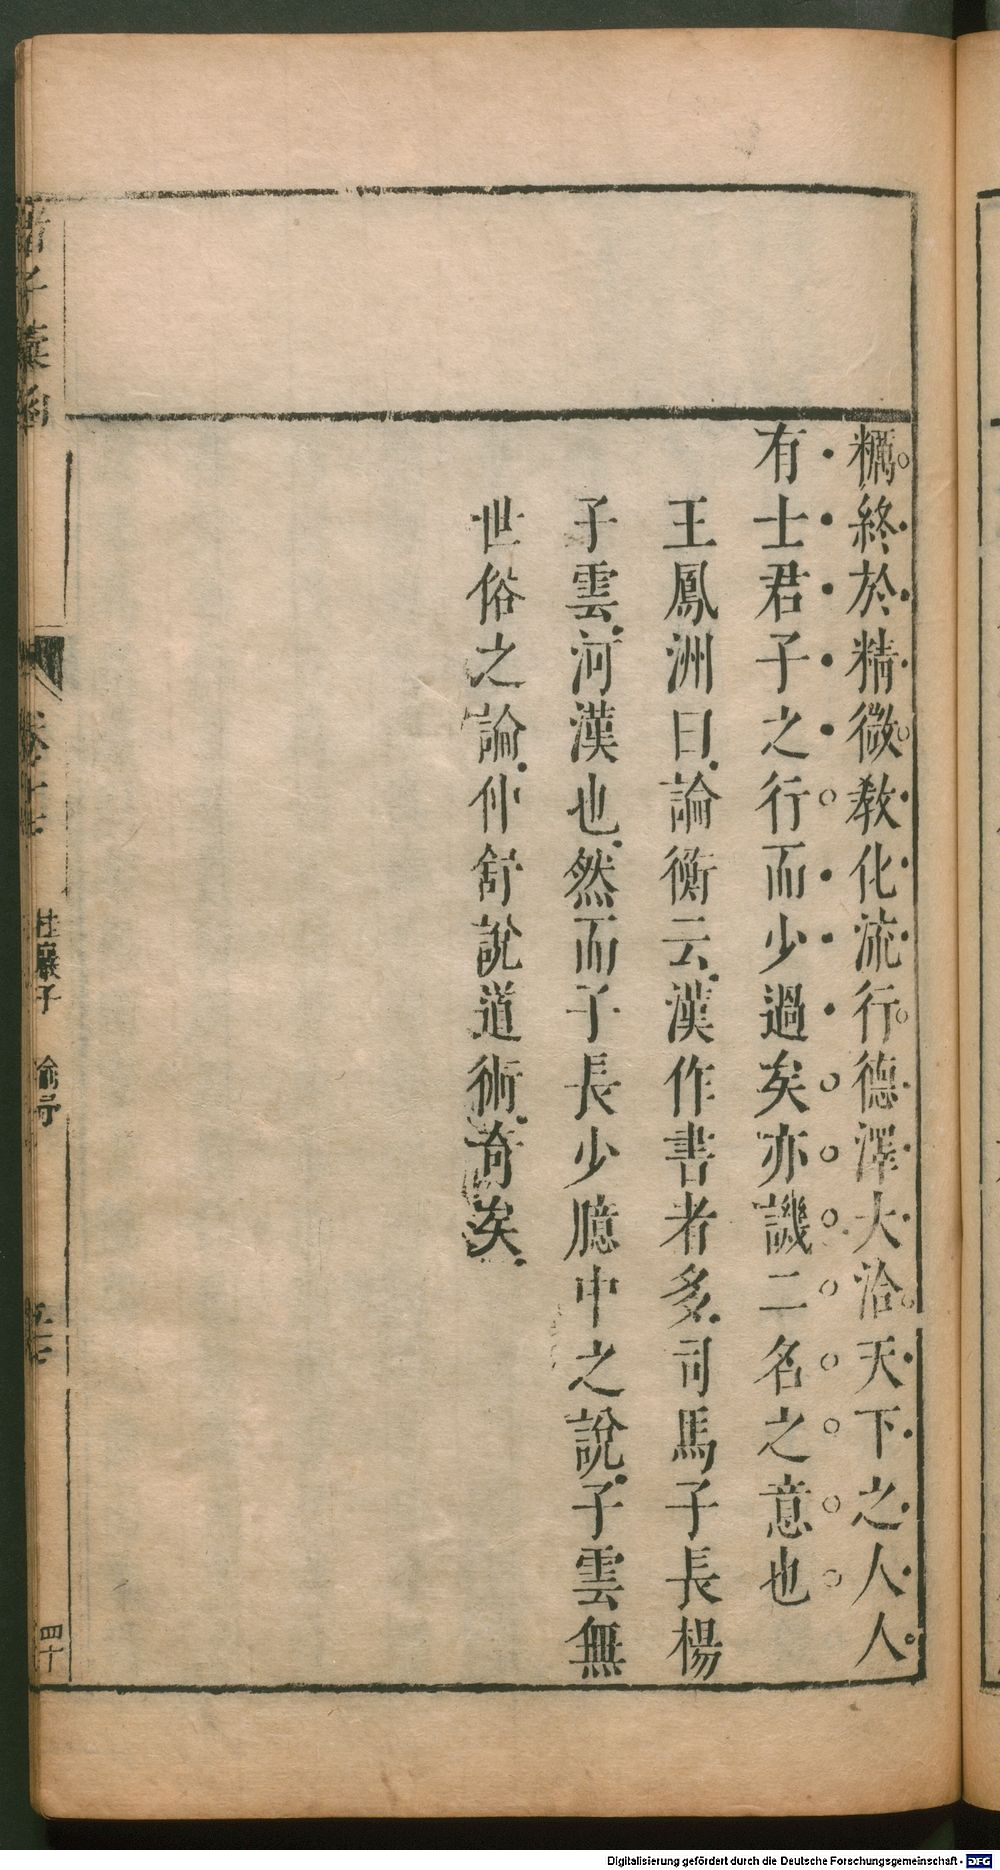 糲終於精微教化流行德澤大洽天下之人人
有士君子之行而少過矣亦譏二名之意也
王鳳洲曰論衡云漢作書者多司馬子長楊
子雲河漢也然而子長少臆中之說子雲無
世俗之論仲舒說道術奇矣
諸子彙函
卷十七
桂巖子
四十
Digitalisierung gefördert durch die Deutsche Forschungsgemeinschaft - DFG